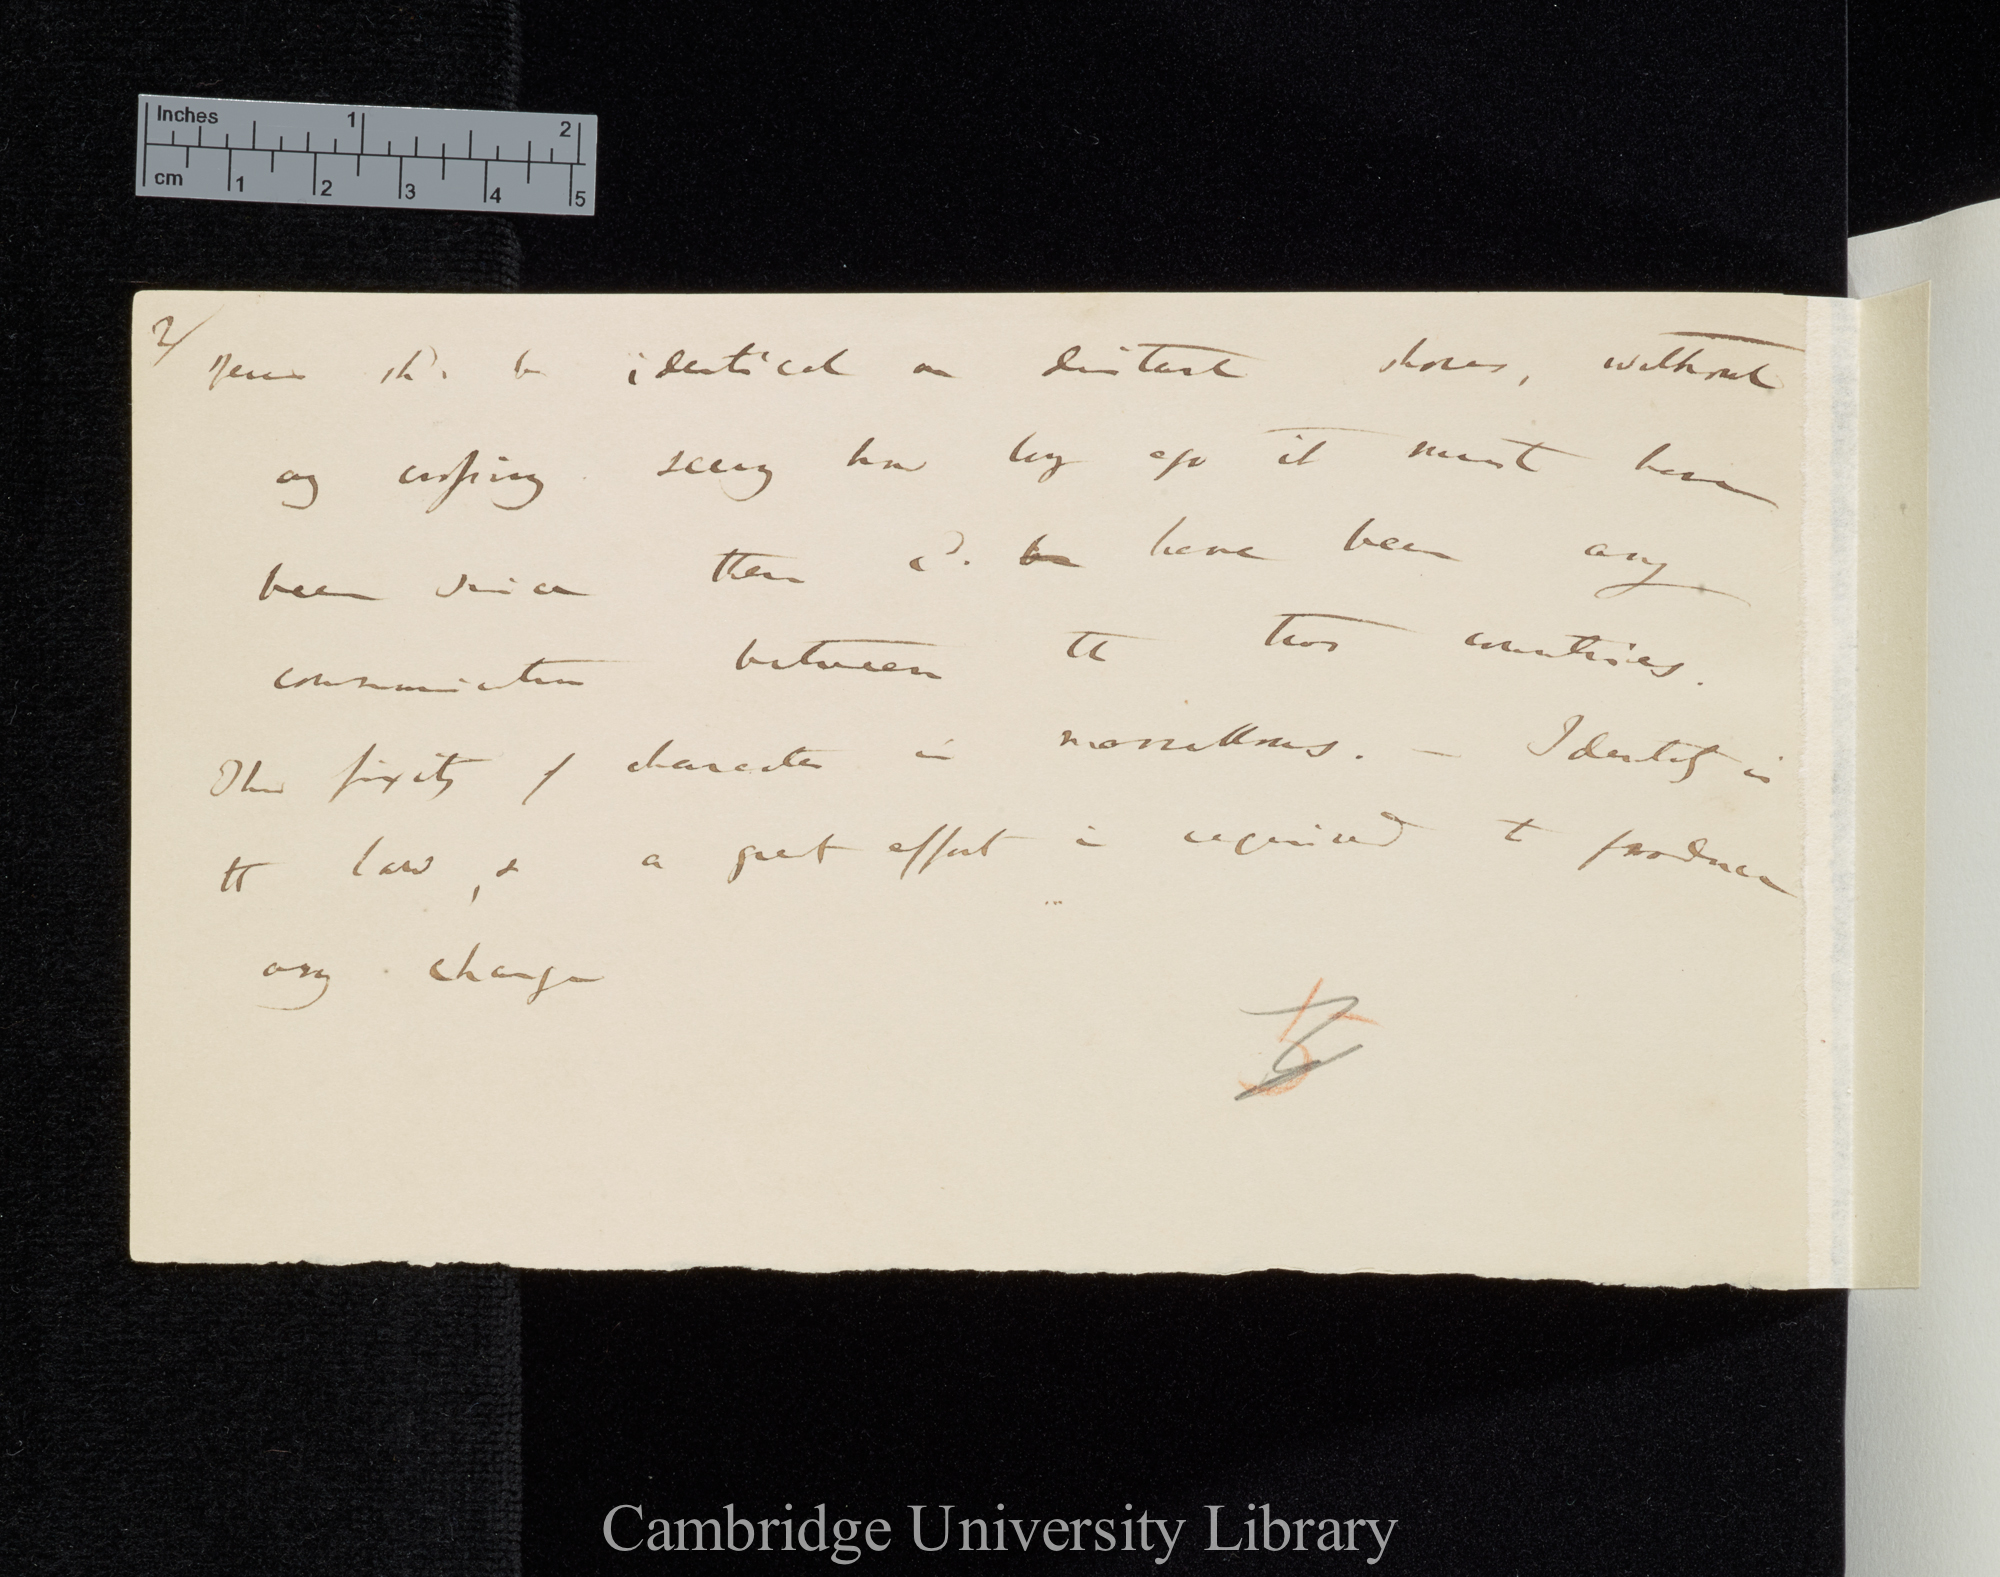 Inches 1 2
cm 1 2 3 4 5
2/
shd. be identical on distant shores, without
any crossing seeing how long ago it must have
been since there cd. be have been any
communication between the two countries.
This fixity of character is marvellous. — Identity is
the law, & a great effort is required to produce
any change
5
Cambridge University Library